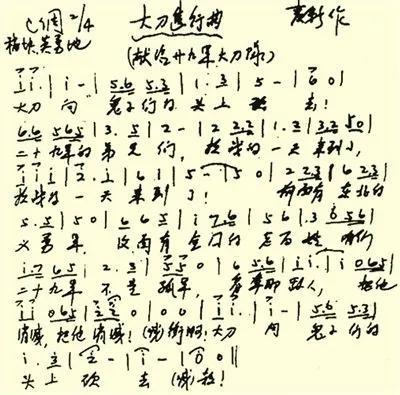 C调 2/4 大刀進行曲 麦新作
稍快 英勇地
(献给廿九军大刀队)
i i. | i - | 5.6 5.3 | 1. 3 | 5 - | 6 0 |
大刀 向 鬼子们的 头上 砍 去!
6.6 5 6 5 | 3. 5 | 2 - | 2 2.3 | 1. 3 | 2.3 5 0 |
二十九军的 弟兄 们, 抗战的 一天 来到了,
i i i | 2. i | 6 1 | 5 - | 5 0 | 2 2.3 | 6 2.3 |
抗战的 一天 来到了! 前面有 东北的
5. 5 | 5 0 | 6 6 5 | i 7.6 | 5 6 | 1. 3 0 5 6 |
义勇军, 后面有 全国的 老百姓, 咱们
i.7 6 5 | 2. 3 | 5 5 0 | 6 5.6 | i i. | i 0 6 5 |
二十九军 不是 孤军, 看准那敌人, 把他
i i 0 6 5 | 2 2 0 | 0 0 | i i. | i - | 5.6 5.3 |
消滅, 把他 消滅! (喊)衝啊! 大刀 向 鬼子们的
i. 3 | 2 - | i - | i 0 ||
头上 砍 去 (喊)杀!